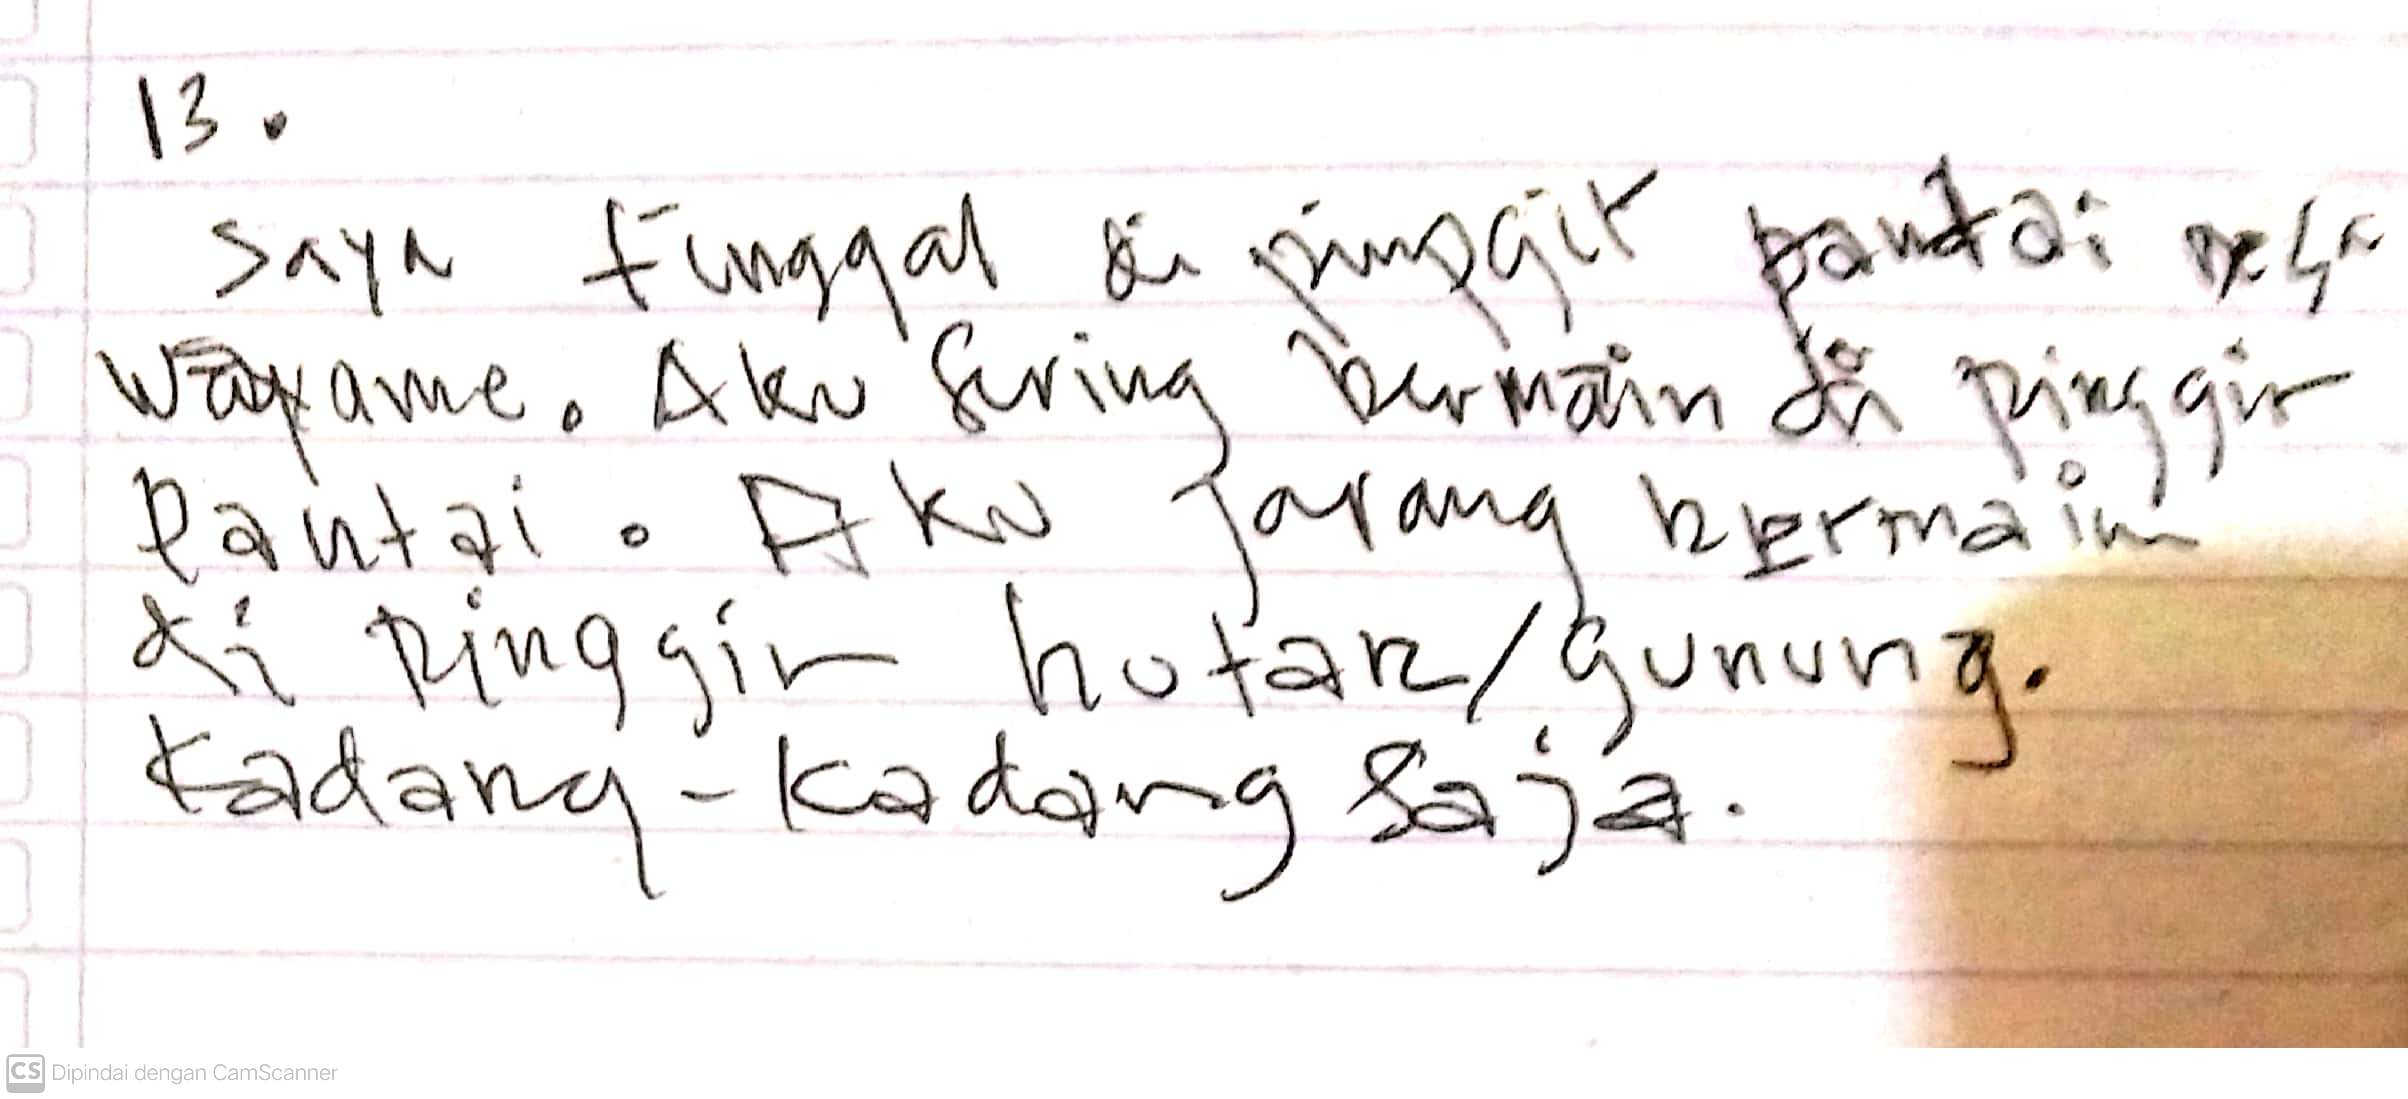 13.
Saya tinggal di pinggir pantai desa
Wayame. Aku sering bermain di pinggir
Pantai. Aku Jarang bermain
di Pinggir hutan/gunung.
Kadang-kadang saja.
CS Dipindai dengan CamScanner